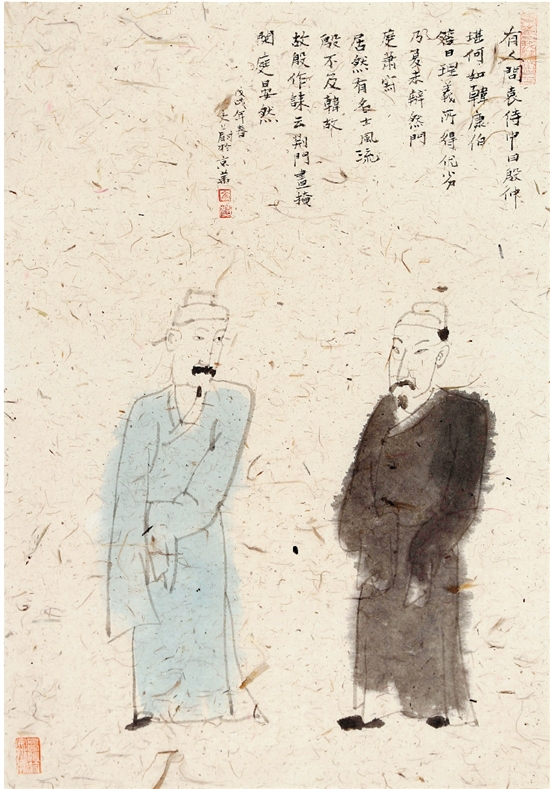 有人問袁侍中曰殷仲
堪何如韓康伯
答曰理義所得优劣
乃复未韓然門
庭蕭寂
居然有名士風流
殷不及韓故
故殷作誄云荆門晝掩
閑庭晏然
戊戌年春
於京華